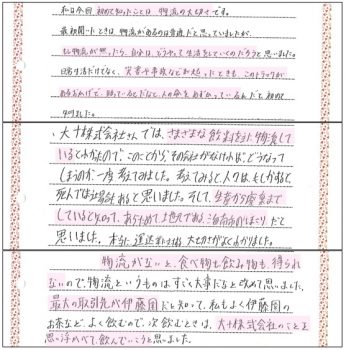 私は今回初めて知ったことは物流の大切さです。
最初聞いたときは、物流があるのは普通だと思っていましたが、
もし物流が無かったら、自分は、どうやって生活をしていくのだろうと思いました。
日常生活だけでなく、災害や事故などが起ったときも、このトラックが
あるおかげで、助っているんだなと、人の命をあずかっているんだと初めて
知りました。
・大十株式会社さんでは、さまざまな飲料を主に物流して
いるとわかたので、このことから、その会社がなければ、どうなって
しまうのか一度考えてみました。考えてみると、人々は、もしかすると、
死んでは場合あると思いました。そして、生産から廃棄まで
していると知って、あらためて上色んである泊南市のほこりだと
思いました。本当に運送かかわる大切さがよくわかりました。
物流がないと、食べ物も飲み物も得られ
ないので、物流というものはすごく大事だなと改めて思いました。
最大の取引先が伊藤園だと知って、私もよく伊藤園の
お茶など、よく飲むので、次飲むときは、大十株式会社のことを
思い浮かべて、飲んでいこうと思いました。